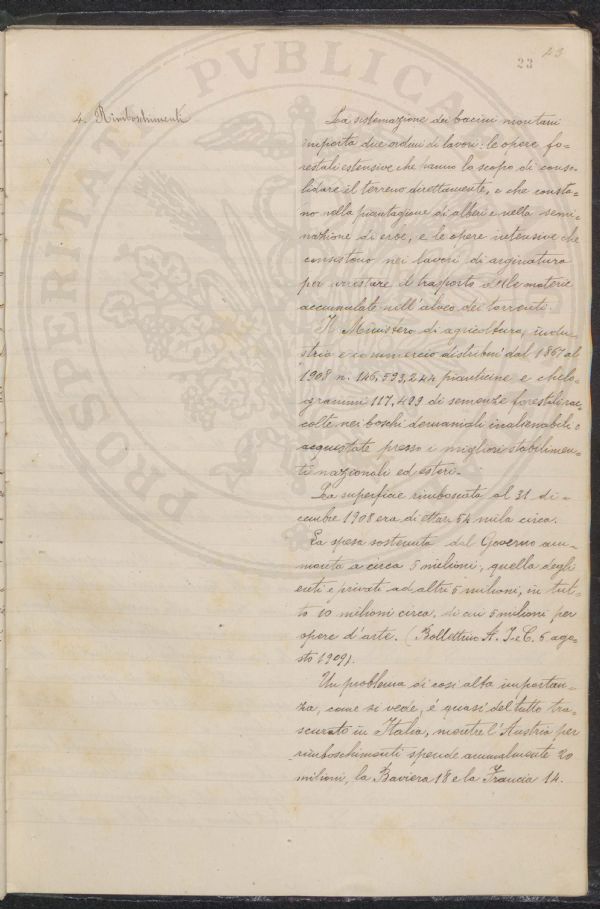 23
23
4. Rimboschimenti
La sistemazione dei bacini montani
importa due ordini di lavori: le opere fo=
restali estensive che hanno lo scopo di conso=
lidare il terreno direttamente, e che consta=
no nella piantagione di alberi e nella semi=
nazione di erbe, e le opere intensive che
consistono nei lavori di arginatura
per arrestare il trasporto delle materie
accumulate nell'alveo dei torrenti.
Il Ministero di agricoltura, indu=
stria e commercio distribuì dal 1867 al
1908 n. 146,593,244 pianticine e chilo=
grammi 117,493 di semenze forestali rac=
colte nei boschi demaniali inalienabili o
acquistate presso i migliori stabilimen=
ti nazionali ed esteri.
La superficie rimboscata al 31 di=
cembre 1908 era di ettar. 54 mila circa.
La spesa sostenuta dal Governo am=
monta a circa 5 milioni, quella degli
enti e privati ad altri 5 milioni, in tut=
to 10 milioni circa, di cui 5 milioni per
opere d'arte. (Bollettino A. I. e C. 5 ago=
sto 1909).
Un problema di così alta importan=
za, come si vede, é quasi del tutto tra=
scurato in Italia, mentre l'Austria per
rimboschimenti spende annualmente 20
milioni, la Baviera 18 e la Francia 14.
PROSPERITATI PVBLICAE